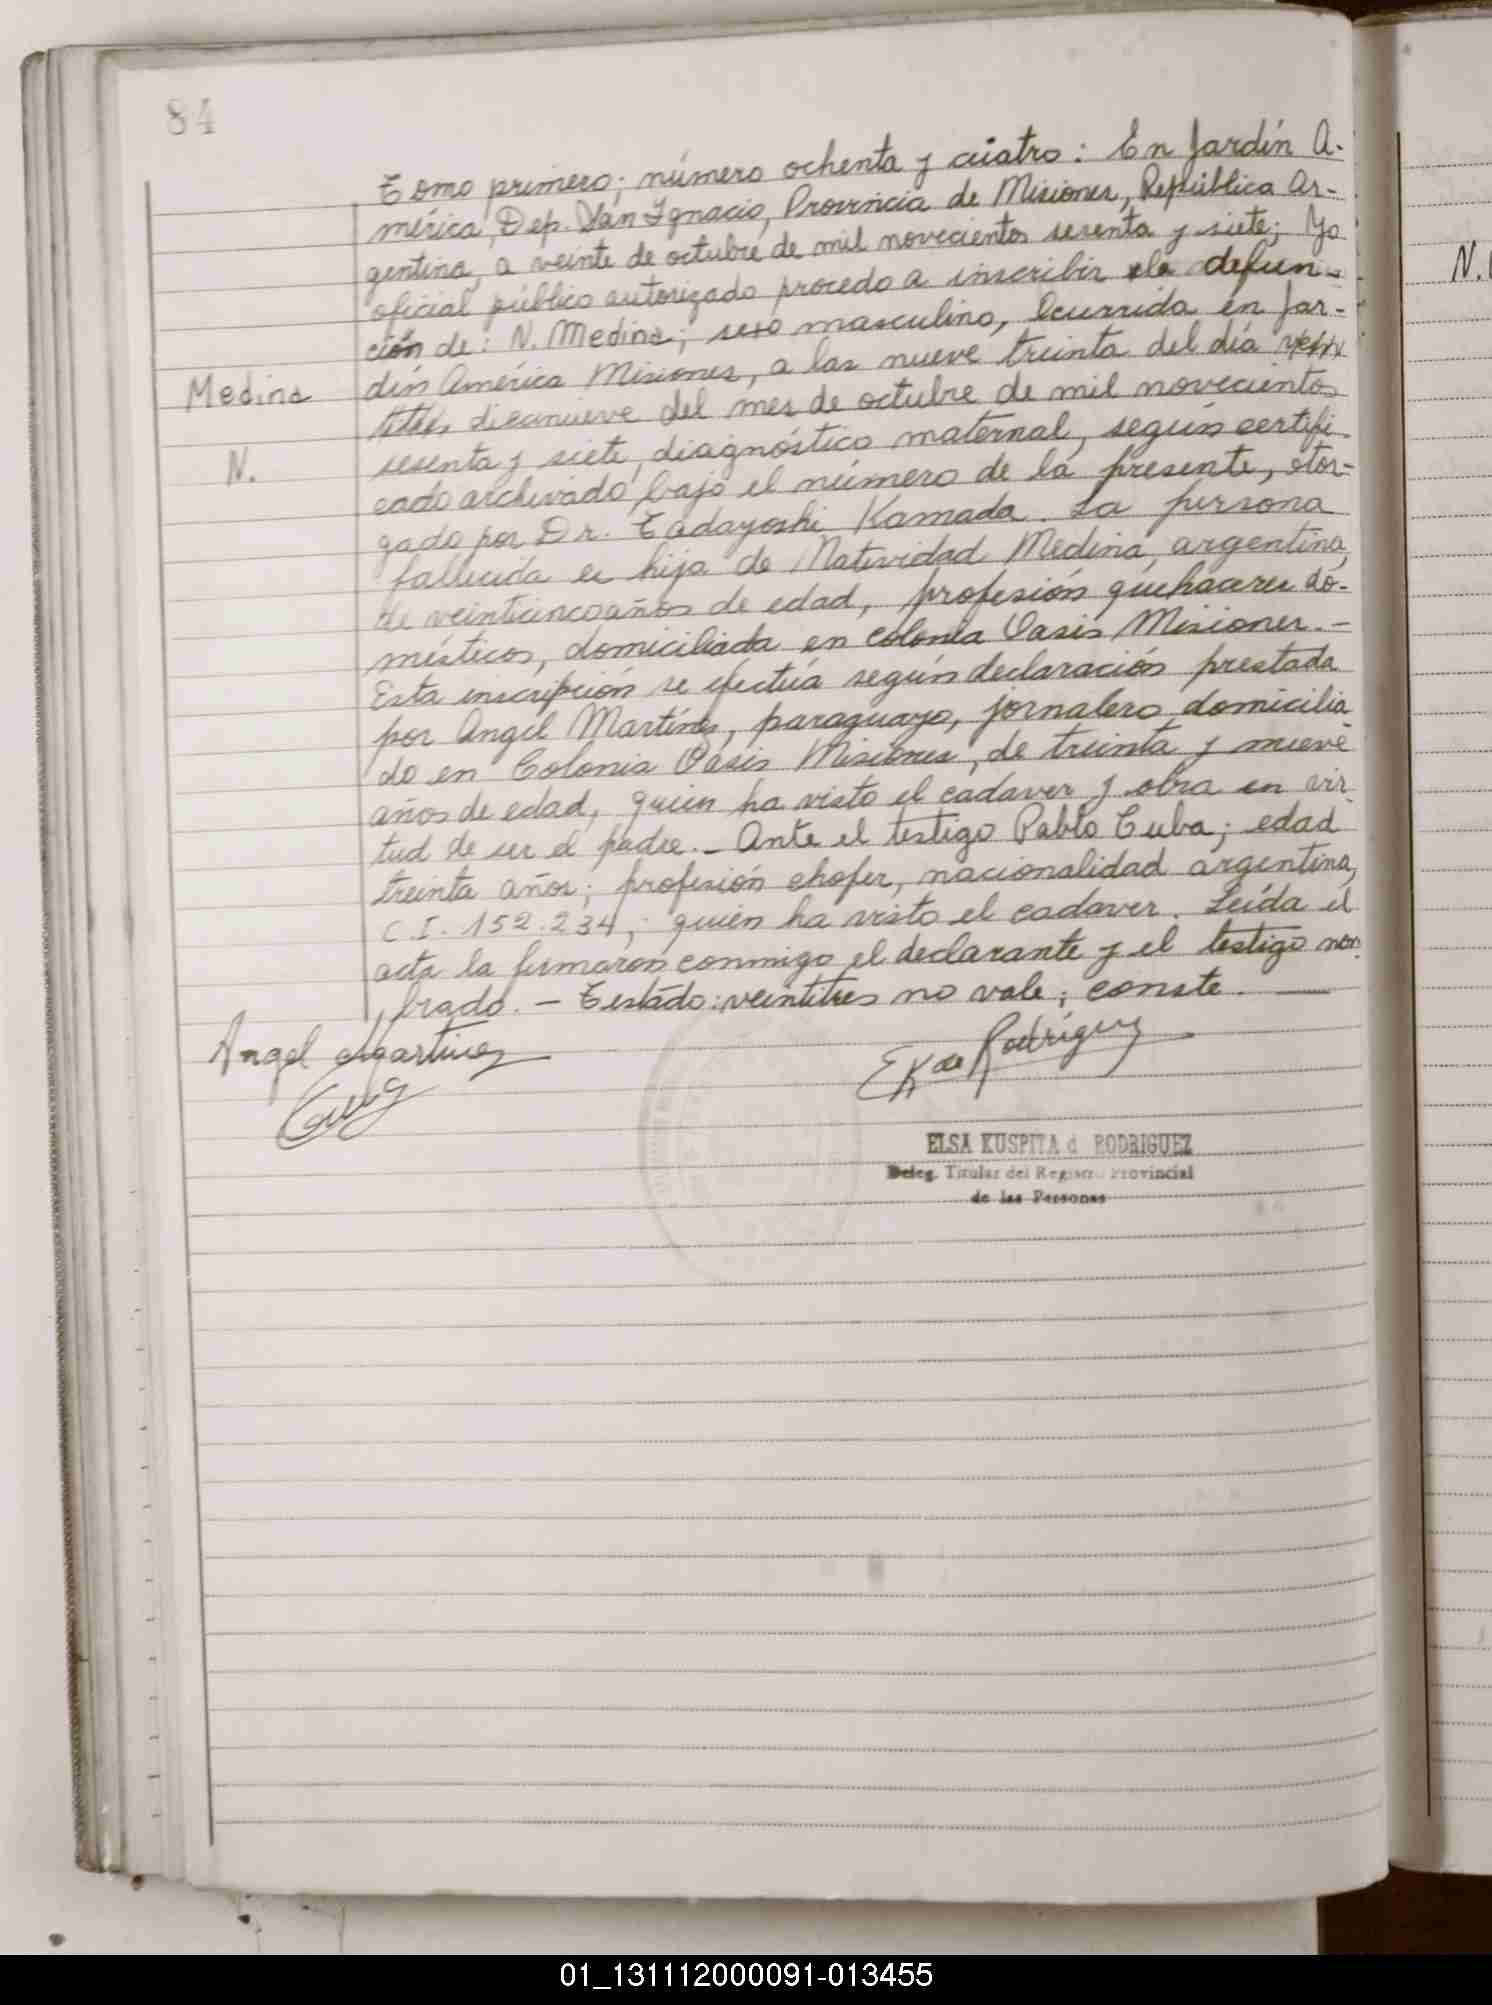 84
Tomo primero; número ochenta y cuatro: En Jardín A-
mérica, Dep. San Ignacio, Provincia de Misiones, República Ar-
gentina, a veinte de octubre de mil novecientos sesenta y siete; Yo
oficial público autorizado procedo a inscribir la defun-
ción de: N. Medina; sexo masculino, Ocurrida en Jar-
dín América Misiones, a las nueve treinta del día
Medina
diecinueve del mes de octubre de mil novecientos
N.
sesenta y siete, diagnóstico maternal, según certifi-
cado archivado bajo el número de la presente, otor-
gado por Dr. Tadayoshi Kamada. La persona
fallecida es hija de Natividad Medina, argentina,
de veinticinco años de edad, profesión quehaceres do-
mésticos, domiciliada en colonia Oasis Misiones.-
Esta inscripción se efectúa según declaración prestada
por Angel Martínez, paraguayo, jornalero, domicilia-
do en Colonia Oasis Misiones, de treinta y nueve
años de edad, quien ha visto el cadaver y obra en vir-
tud de ser el padre.- Ante el testigo Pablo Cuba; edad
treinta años; profesión chofer, nacionalidad argentina,
C.I. 152.234,; quien ha visto el cadaver. Leída el
acta la firmaron conmigo el declarante y el testigo nom-
brado. - Testado: veintitres no vale; conste. —
Angel Martinez
EK de Rodríguez
ELSA KUSPITA d RODRIGUEZ
Deleg. Titular del Registro Provincial
de las Personas
N.
01_131112000091-013455